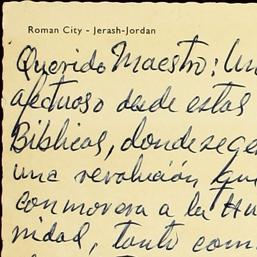 Roman City - Jerash-Jordan
Querido Maestro: Un
afectuoso desde estas
Bíblicas, donde se ge
una revolución, que
conmovera a la Hu
nidad, tanto com